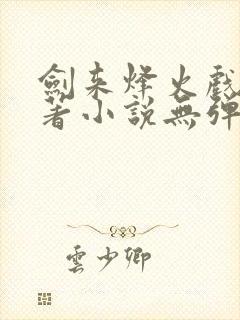 劍来烽火戲
著小說無彈
雲少卿